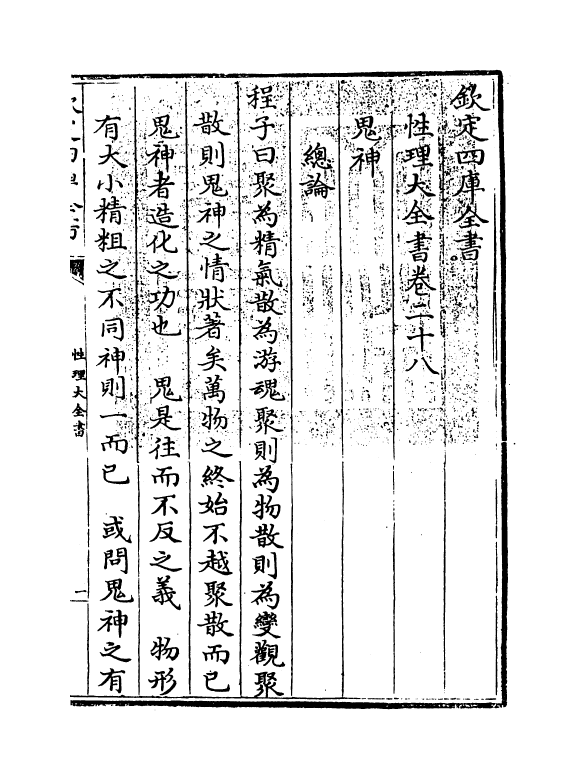 欽定四庫全書
性理大全書卷二十八
鬼神
總論
程子曰聚為精氣散為游魂聚則為物散則為變觀聚
散則鬼神之情狀著矣萬物之終始不越聚散而已
鬼神者造化之功也　鬼是往而不反之義　物形
有大小精粗之不同神則一而已　或問鬼神之有
性理大全書